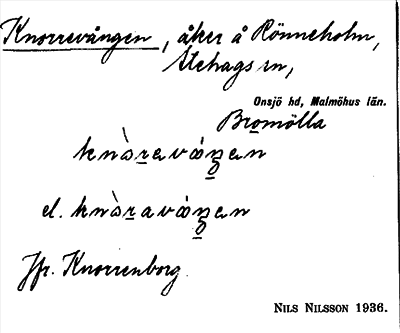 Knorrevången, åker å Rönneholm,
Stehags sn,
Onsjö hd, Malmöhus län.
Bromölla
knòravåŋan
el. knòravåŋan
Jfr. Knorrenborg.
NILS NILSSON 1936.